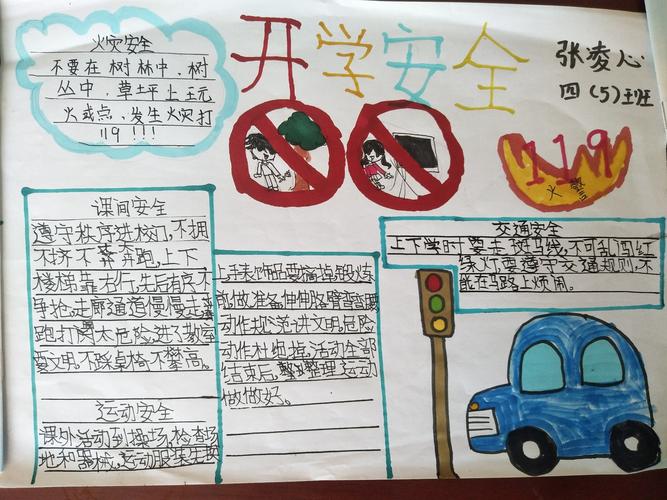 开学安全
张凌心
四(5)班
火灾安全
不要在树林中、树
丛中、草坪上玩
火或点、发生火灾打
119!!!
119
火警
课间安全
遵守秩序进校门,不拥
不挤不奔跑,上下
楼梯靠右行,先后有序不
争抢,走廊通道慢慢走追
跑打闹太危险,进了教室
要文明,不踩桌椅不攀高。
运动安全
课外活动到操场,检查场
地和器械,运动服装先换
上手表饰品要摘掉,锻炼
前做准备,伸伸胳臂弯弯腰
动作规范讲文明,危险
动作杜绝掉,活动全部
结束后,整理运动
做做好。
交通安全
上下学时要走斑马线,不可乱闯红
绿灯要遵守交通规则,不
能在马路上烦闹。